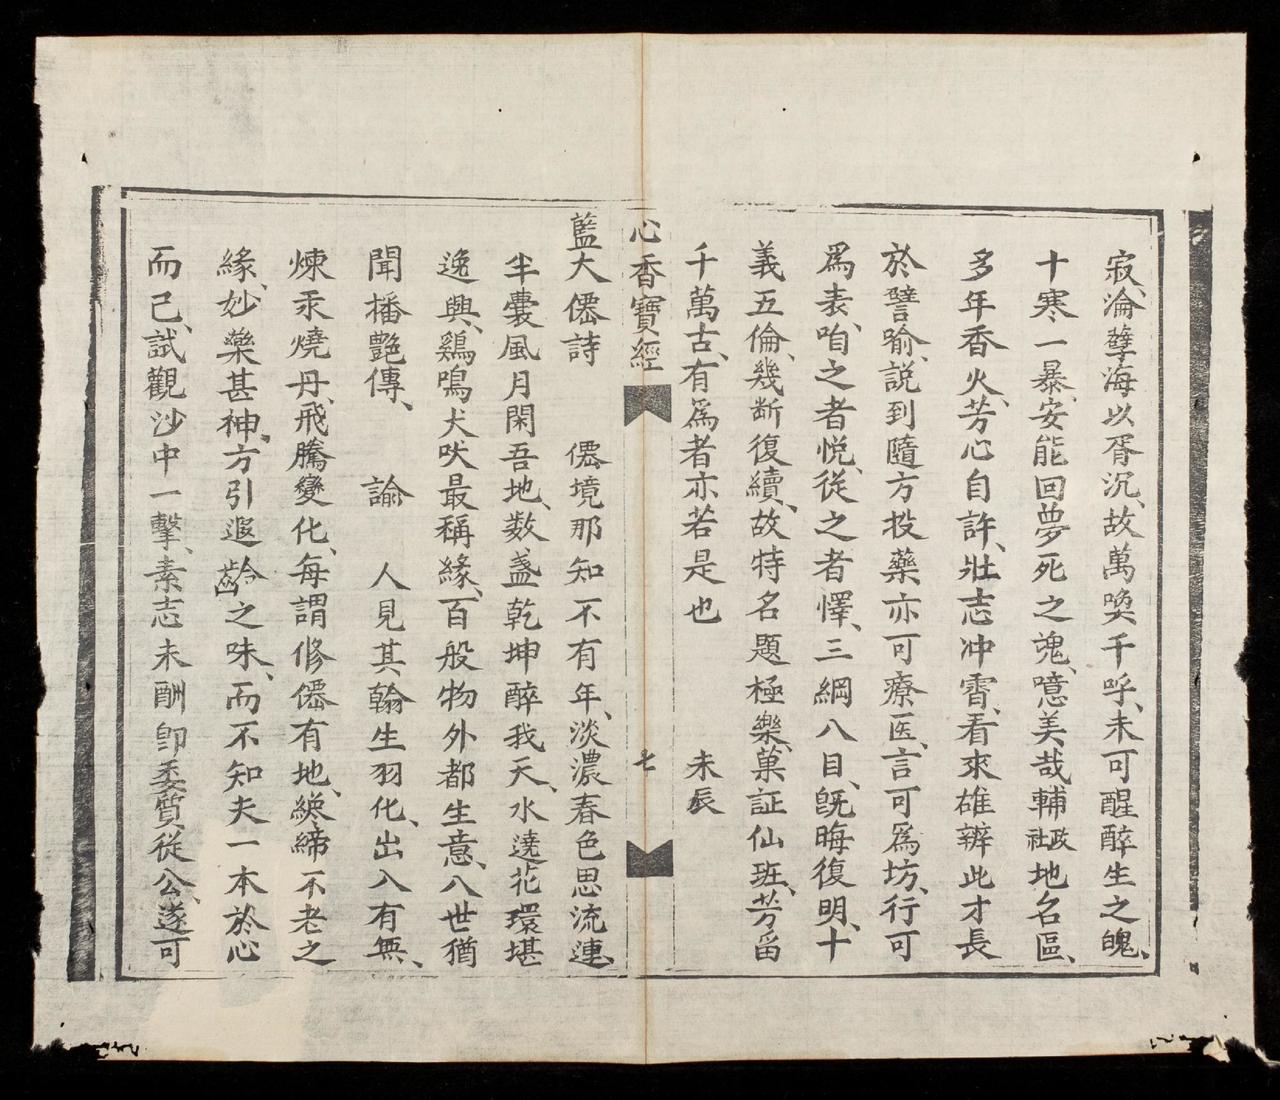 寂、淪孽海以胥沉、故萬喚千呼、未可醒醉生之魄、
十寒一暴、安能回夢死之魂、噫美哉輔政社地名區、
多年香火、芳心自許、壯志冲霄、看來雄辨此才長
於譬喻、説到隨方投藥亦可療医、言可爲坊、行可
爲表、咱之者悦、從之者懌、三綱八目、旣晦復明、十
義五倫、幾断復續、故特名題極樂、菓証仙班、芳畄
千萬古、有爲者亦若是也 未辰
心香寶經 七
藍大僊詩 僊境那知不有年、淡濃春色思流連、
半囊風月閑吾地、数盞乾坤醉我天、水遶花環堪
逸興、鷄鳴犬吠最稱緣、百般物外都生意、八世猶
聞播艶傳、 諭 人見其翰生羽化、出入有無、
煉汞燒丹、飛騰變化、每謂修僊有地、緱締不老之
緣、妙藥甚神、方引遐齡之味、而不知夫一本於心
而已、試觀沙中一擊、素志未酬、卽委質從公、遂可